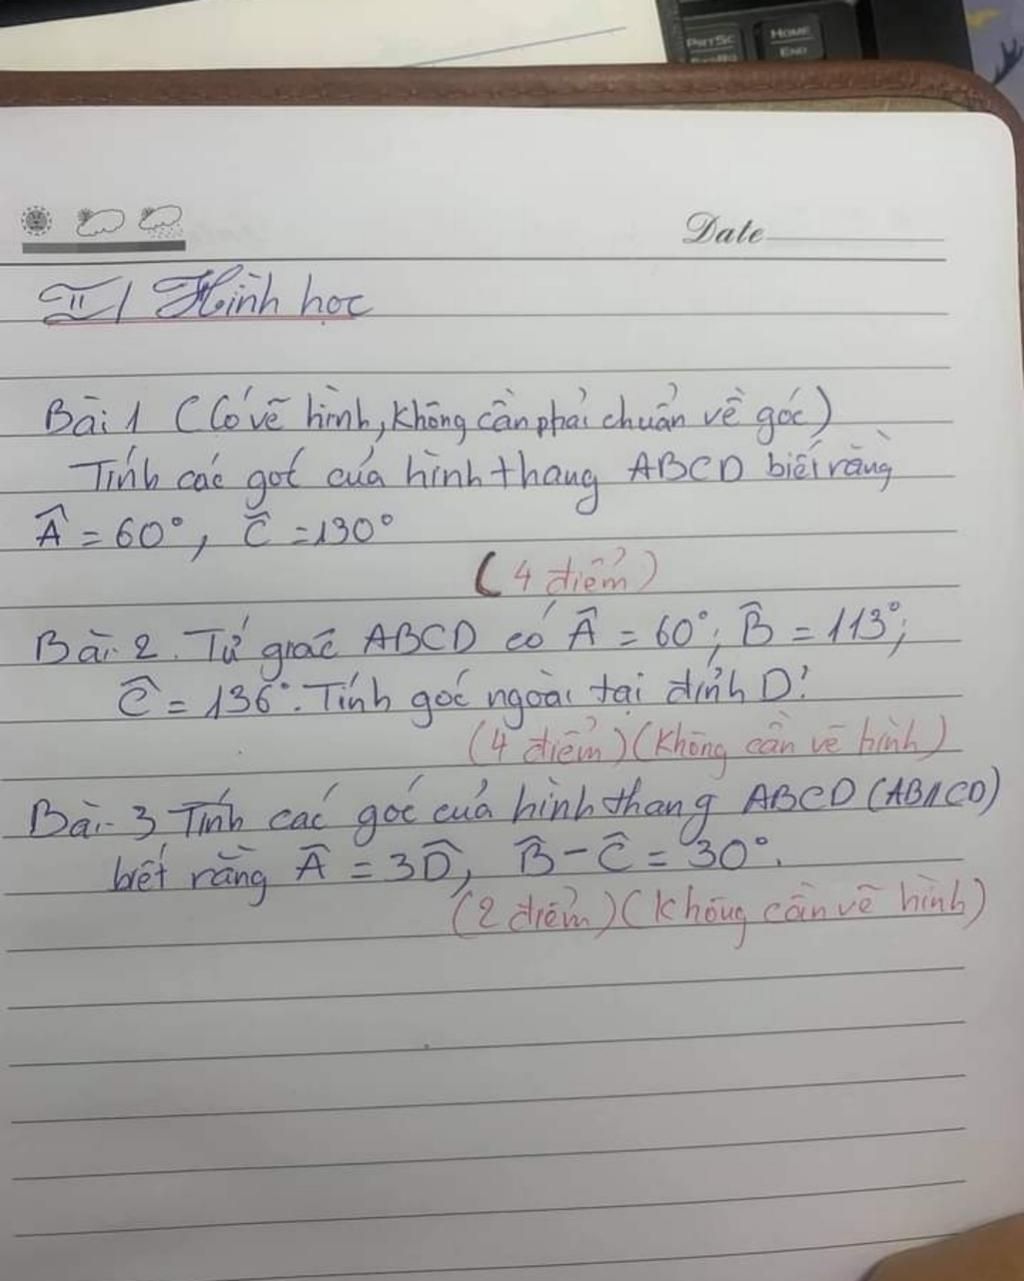 PrtSc
HOME
END
Date
II/ Hình học
Bài 1 (Có vẽ hình, không cần phải chuẩn về góc)
Tính các gót của hình thang ABCD biết rằng
Â = 60°, Ĉ = 130°
(4 điểm)
Bài 2. Tứ giác ABCD có Â = 60°; B̂ = 113°;
Ĉ = 136°. Tính góc ngoài tại đỉnh D?
(4 điểm) (Không cần vẽ hình)
Bài 3 Tính các góc của hình thang ABCD (AB//CD)
biết rằng Â = 3D̂, B̂ - Ĉ = 30°.
(2 điểm) (không cần vẽ hình)